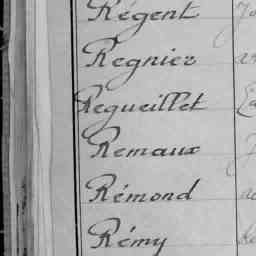 Régent
Regnier
Regueillet
Remaux
Rémond
Rémy